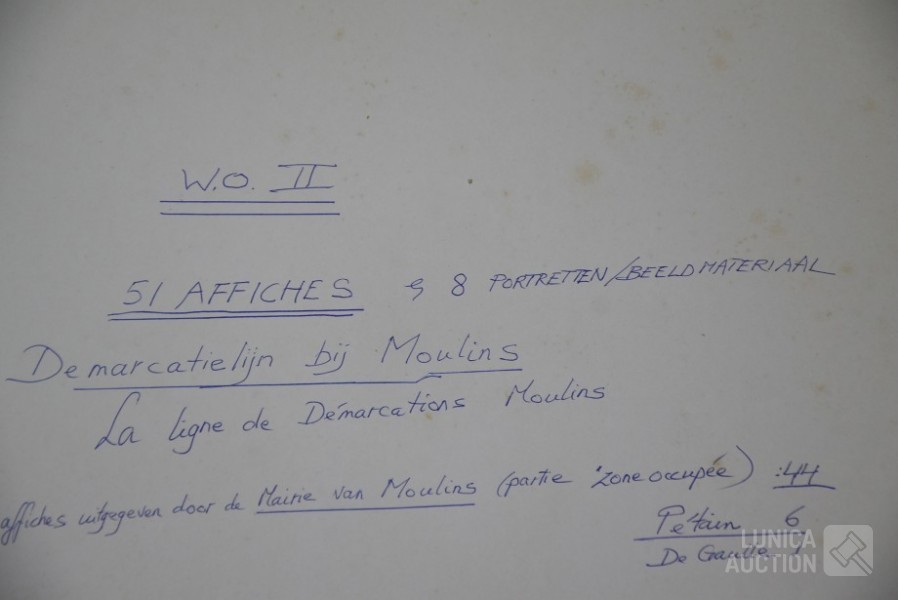 W.O. II
51 AFFICHES & 8 PORTRETTEN/BEELDMATERIAAL
Demarcatielijn bij Moulins
La ligne de Démarcations Moulins
affiches uitgegeven door de Mairie van Moulins (partie "zone occupée) :44
Pétain 6
De Gaulle 1
LUNICA
AUCTION